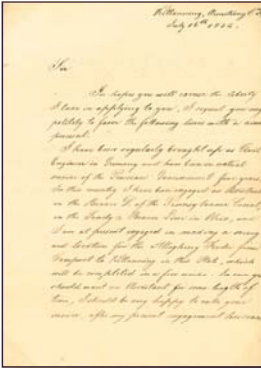 Kittanning, Armstrong
July 16th 18
Sir
In hopes you will excuse the liberty
I take in applying to you, I request you very
politely to favor the following lines with a
perusal.
I have been regularly brought up as Civil
Engineer in Germany and have been in actual
service of the Prussian Government four years.
In this country I have been engaged as Assistant
on the Beaver D. of the Pennsylvania Canal,
on the Sandy & Beaver Line in Ohio, and
I am at present engaged in making a survey
and location for the Allegheny Feeder from
Freeport to Kittanning in this State, which
will be completed in a few weeks. In case you
should want an Assistant for some length of
time, I should be very happy to enter your
service, after my present engagement